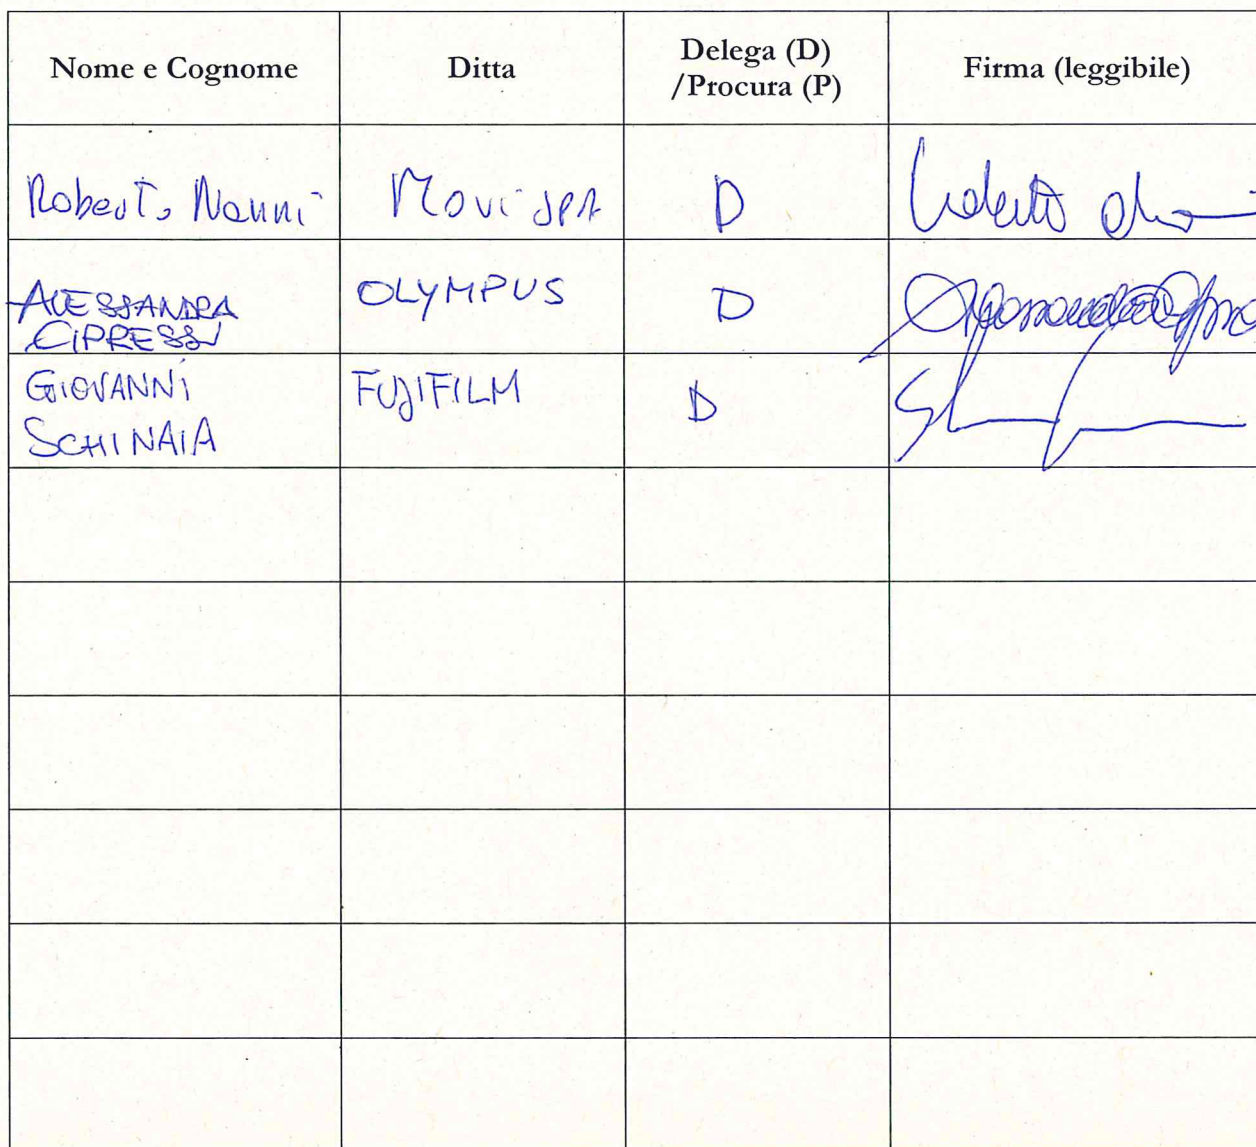 Nome e Cognome Ditta Delega (D) /Procura (P) Firma (leggibile)
Roberto Nanni Movi SPA D
ALESSANDRA CIPRESSI OLYMPUS D
GIOVANNI SCHINAIA FUJIFILM D